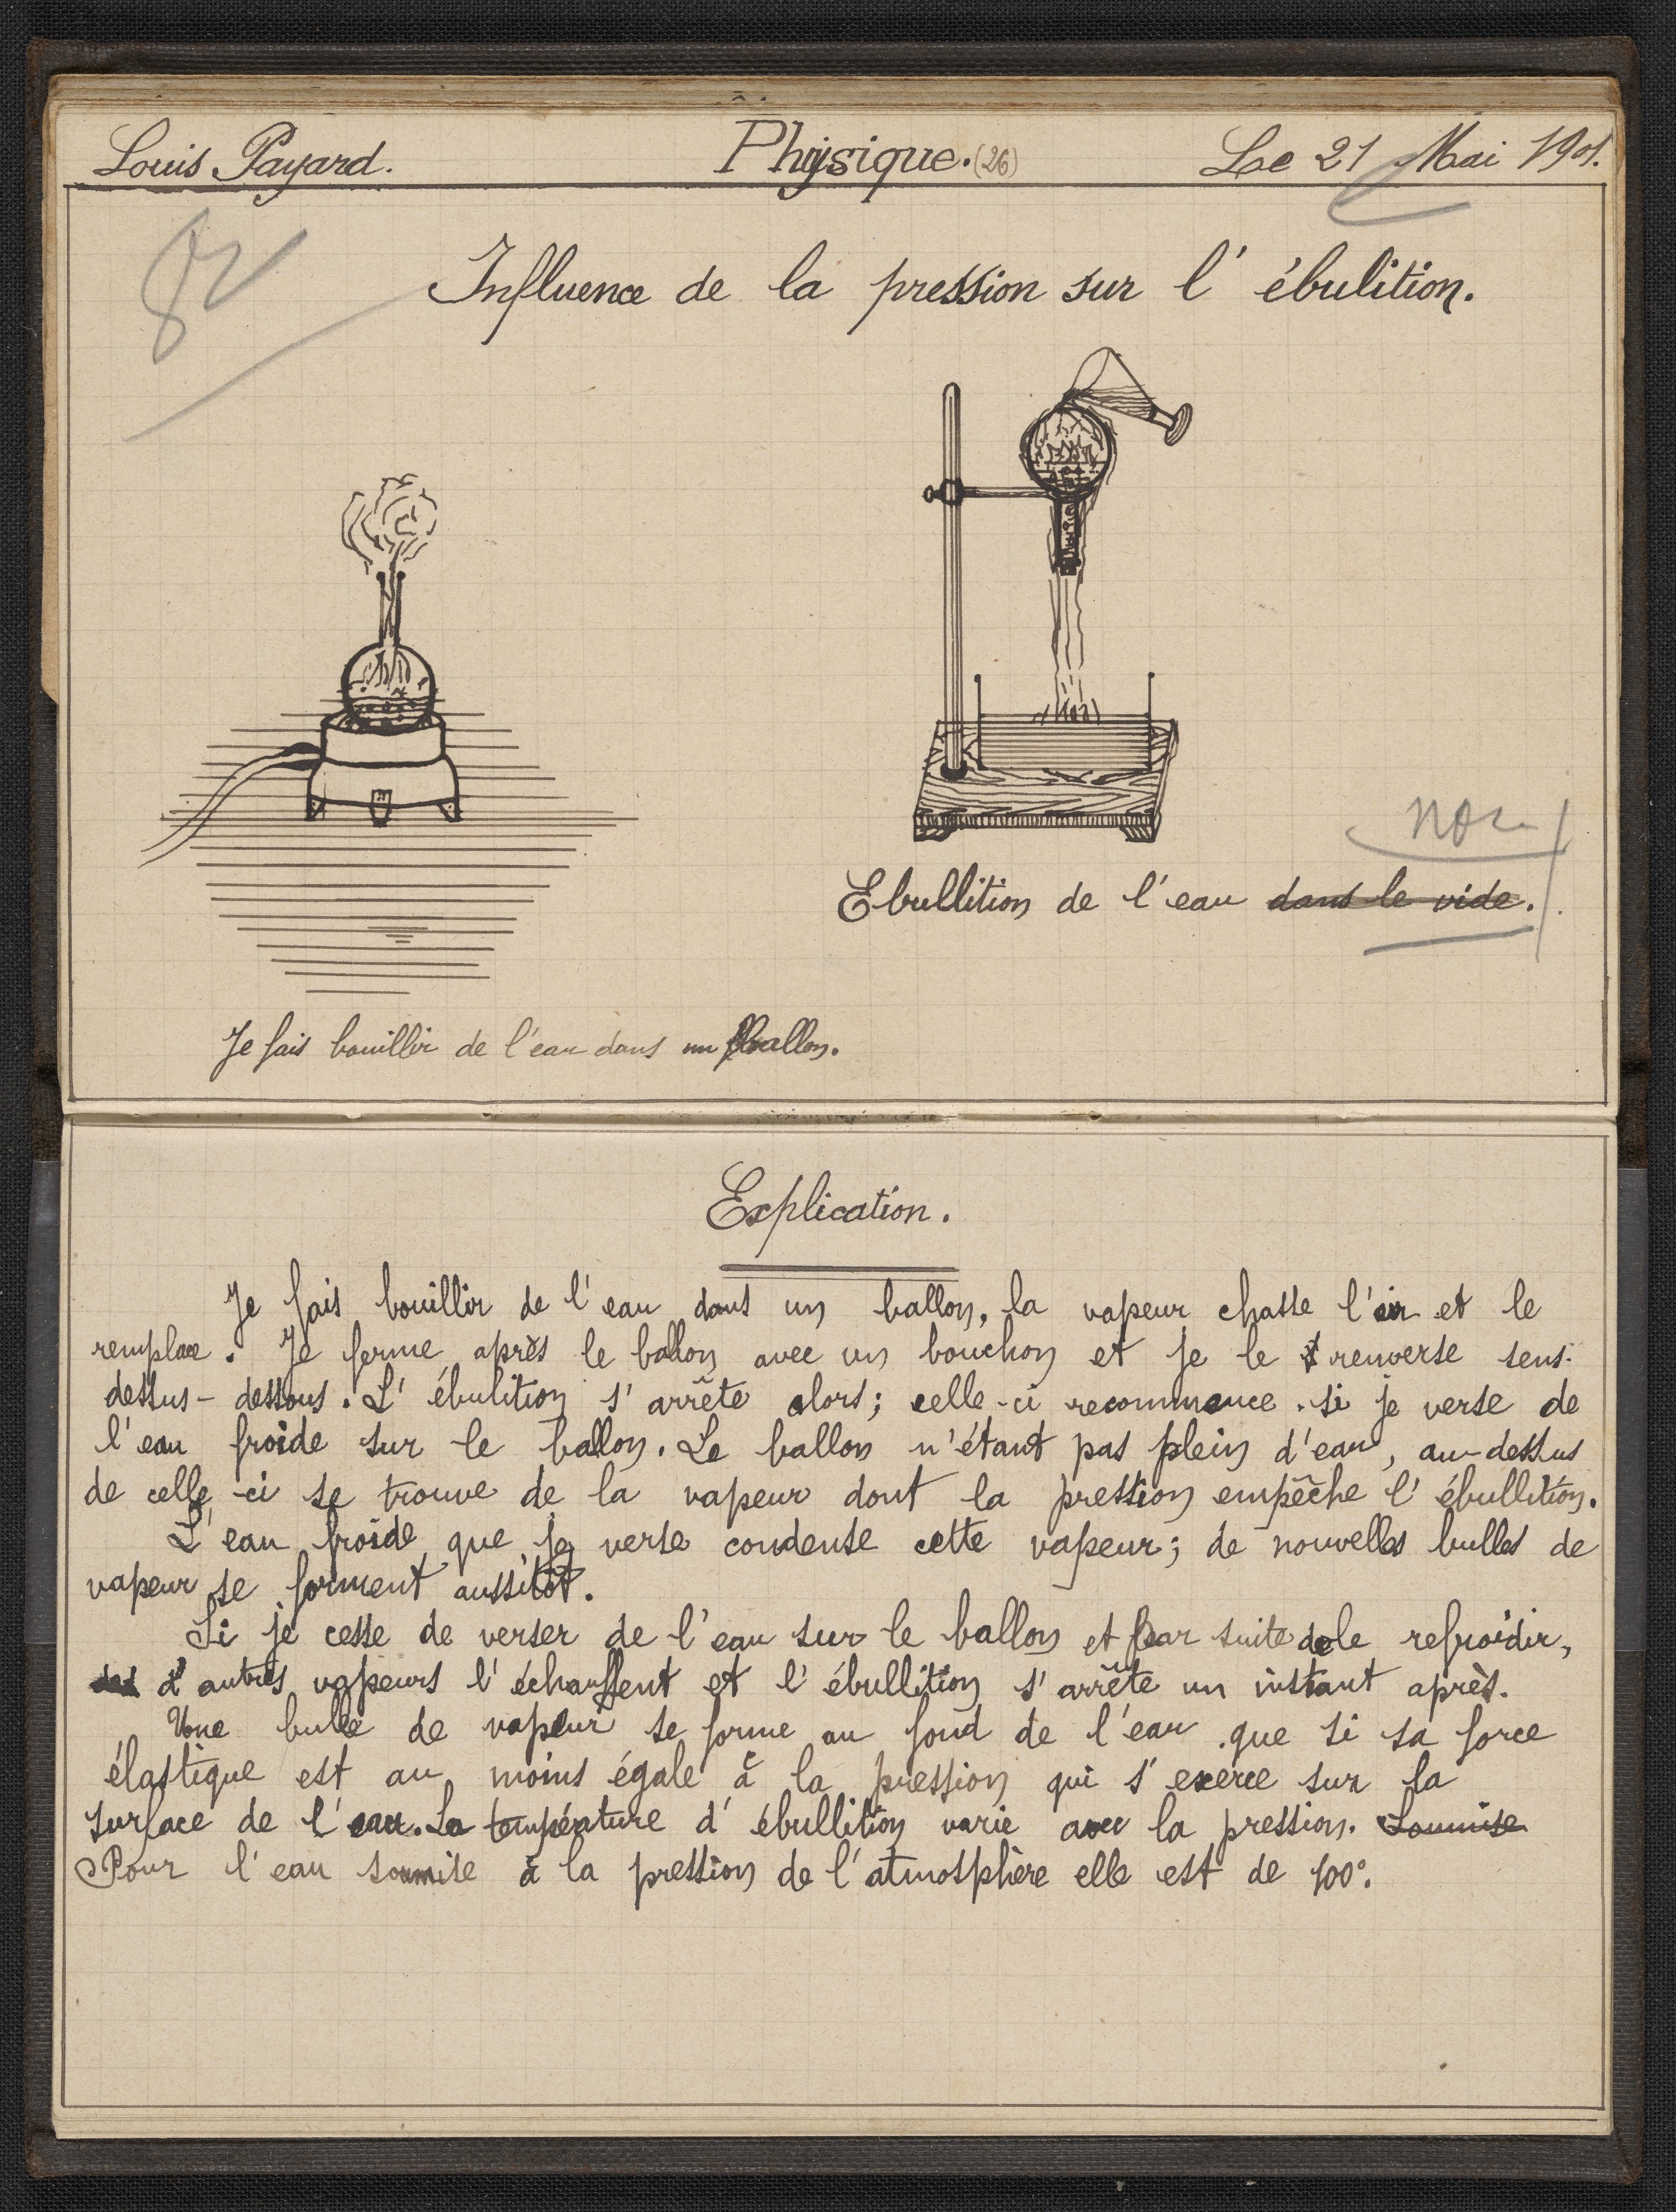 Louis Payard. Physique. (26) Le 21 Mai 1901.
Influence de la pression sur l'ébulition.
non
Ebullition de l'eau dans le vide.
Je fais bouillir de l'eau dans un ballon.
Explication.
Je fais bouillir de l'eau dans un ballon, la vapeur chasse l'air et le
remplace. Je ferme après le ballon avec un bouchon et je le renverse sens-
dessus-dessous. L'ébulition s'arrête alors; celle-ci recommence si je verse de
l'eau froide sur le ballon. Le ballon n'étant pas plein d'eau, au-dessus
de celle-ci se trouve de la vapeur dont la pression empêche l'ébullition.
L'eau froide que je verse condense cette vapeur; de nouvelles bulles de
vapeur se forment aussitôt.
Si je cesse de verser de l'eau sur le ballon et par suite de le refroidir,
d'autres vapeurs l'échauffent et l'ébullition s'arrête un instant après.
Une bulle de vapeur se forme au fond de l'eau que si sa force
élastique est au moins égale à la pression qui s'exerce sur la
surface de l'eau. La température d'ébullition varie avec la pression. Soumise
Pour l'eau soumise à la pression de l'atmosphère elle est de 100°.